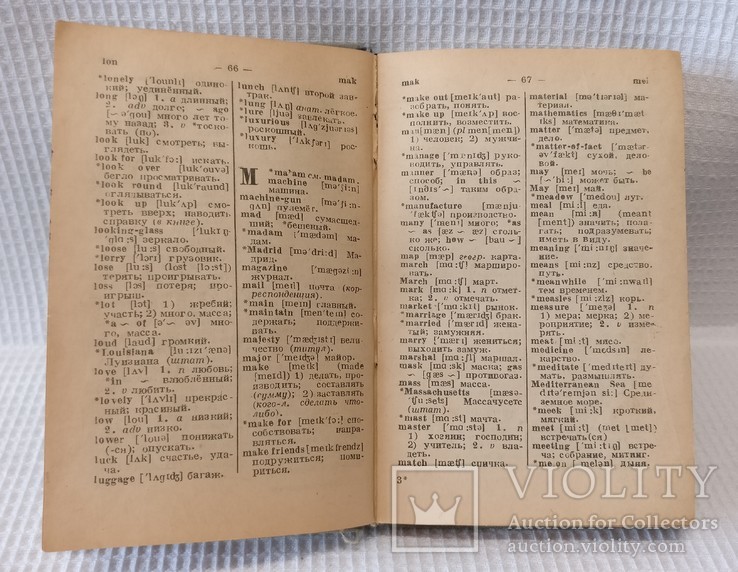 lon
— 66 —
mak
*lonely ['lounlɪ] одино-
кий; уединённый.
long [lɔŋ] 1. a длинный;
2. adv долго; ~ ago
[~ ə'gou] много лет то-
му назад; 3. v *тоско-
вать (по).
look [luk] смотреть; вы-
глядеть.
look for [luk'fɔ:] искать.
*look over [luk'ouvə]
бегло просматривать.
*look round [luk'raund]
оглядываться.
*look up [luk'ʌp] смо-
треть вверх; наводить
справку (в книге).
looking-glass ['lukɪŋ-
'glɑ:s] зеркало.
*loose [lu:s] свободный.
*lorry ['lɔrɪ] грузовик.
lose [lu:z] (lost [lɔst])
терять; проигрывать.
loss [lɔs] потеря; про-
игрыш.
*lot [lɔt] 1) жребий;
участь; 2) много, масса.
*a ~ of [ə'~ əv] мно-
го, масса.
loud [laud] громкий.
*Louisiana [lu:ɪzɪ'ænə]
Луизиана (штат).
love [lʌv] 1. n любовь;
*in ~ влюблённый;
2. v любить.
*lovely ['lʌvlɪ] прекрас-
ный; красивый.
low [lou] 1. a низкий;
2. adv низко.
lower ['louə] понижать
(-ся); опускать.
luck [lʌk] счастье, уда-
ча.
luggage ['lʌgɪdʒ] багаж.
lunch [lʌntʃ] второй зав-
трак.
*lung [lʌŋ] анат. лёгкое.
*lure [ljuə] завлекать.
*luxurious [lʌg'zjuərɪəs]
роскошный.
*luxury ['lʌkʃərɪ] рос-
кошь.
M
*ma'am см. madam.
machine [mə'ʃi:n]
машина.
machine-gun [mə'ʃi:n-
gʌn] пулемёт.
mad [mæd] сумасшед-
ший; *бешеный.
*madam ['mædəm] ма-
дам.
*Madrid [mə'drɪd] г. Ма-
дрид.
magazine [mægəzi:n]
журнал.
mail [meɪl] почта (кор-
респонденция).
*main [meɪn] главный.
*maintain [men'teɪn] со-
держать; поддержи-
вать.
majesty ['mædʒɪstɪ] ве-
личество (титул).
*major ['meɪdʒə] майор.
make [meɪk] (made
[meɪd]) 1) делать, про-
изводить; составлять
(сумму); 2) заставлять
(кого-л. сделать что-
либо).
*make for [meɪk'fɔ:] спо-
собствовать; направ-
ляться.
make friends [meɪk frendz]
подружиться; поми-
риться.
mak
— 67 —
mei
*make out [meɪk'aut] раз-
обрать, понять.
*make up [meɪk'ʌp] вос-
полнить, возместить.
man [mæn] (pl men [men])
1) человек; 2) мужчи-
на.
*manage ['mænɪdʒ] руко-
водить, управлять.
manner ['mænə] образ;
способ; in this ~
[ɪnðɪs'~] таким обра-
зом.
*manufacture [mænju-
'fæktʃə] производство.
many ['menɪ] много; *as
~ as [æz ~ æz] столь-
ко же; how ~ [hau ~]
сколько.
map [mæp] геогр. карта.
march [mɑ:tʃ] марширо-
вать.
March [mɑ:tʃ] март.
mark [mɑ:k] 1. n отмет-
ка; 2. v отмечать.
*market ['mɑ:kɪt] рынок.
*marriage ['mærɪdʒ] брак.
*married ['mærɪd] жена-
тый; замужняя.
marry ['mærɪ] жениться;
выходить замуж.
marshal [mɑ:ʃl] маршал.
mask [mɑ:sk] маска; gas
~ [gæs ~] противогаз.
mass [mæs] масса.
*Massachusetts [mæsə-
'tʃu:sets] Массачусетс
(штат).
*mast [mɑ:st] мачта.
master ['mɑ:stə] 1. n
1) хозяин; господин;
2) учитель; 2. v овла-
деть.
match [mætʃ] спичка.
3*
material [mə'tɪərɪəl] ма-
териал.
mathematics [mæθɪ'mæt-
ɪks] математика.
matter ['mætə] предмет,
дело.
*matter-of-fact ['mætər-
əv'fækt] сухой, дело-
вой.
may [meɪ] мочь; ~ be
[~'bi:] может быть.
May [meɪ] май.
*meadow ['medou] луг.
meal [mi:l] еда.
mean [mi:n] (meant
[ment]) значить; пола-
гать; подразумевать;
иметь в виду.
meaning ['mi:nɪŋ] значе-
ние.
means [mi:nz] средство,
путь.
*meanwhile ['mi:nwaɪl]
тем временем.
*measles ['mi:zlz] корь.
measure ['meʒə] 1. n
1) мера; мерка; 2) ме-
роприятие; 2. v изме-
рять.
meat [mi:t] мясо.
medicine ['medsɪn] ле-
карство.
*meditate ['medɪteɪt] ду-
мать, размышлять.
Mediterranean Sea [me-
dɪtə'reɪnjən si:] Среди-
земное море.
*meek [mi:k] кроткий,
мягкий.
meet [mi:t] (met [met])
встречать(ся)
meeting ['mi:tɪŋ] встре-
ча; собрание, митинг.
*melon ['melən] дыня.
VIOLITY
Auction for Collectors
www.auction.violity.com